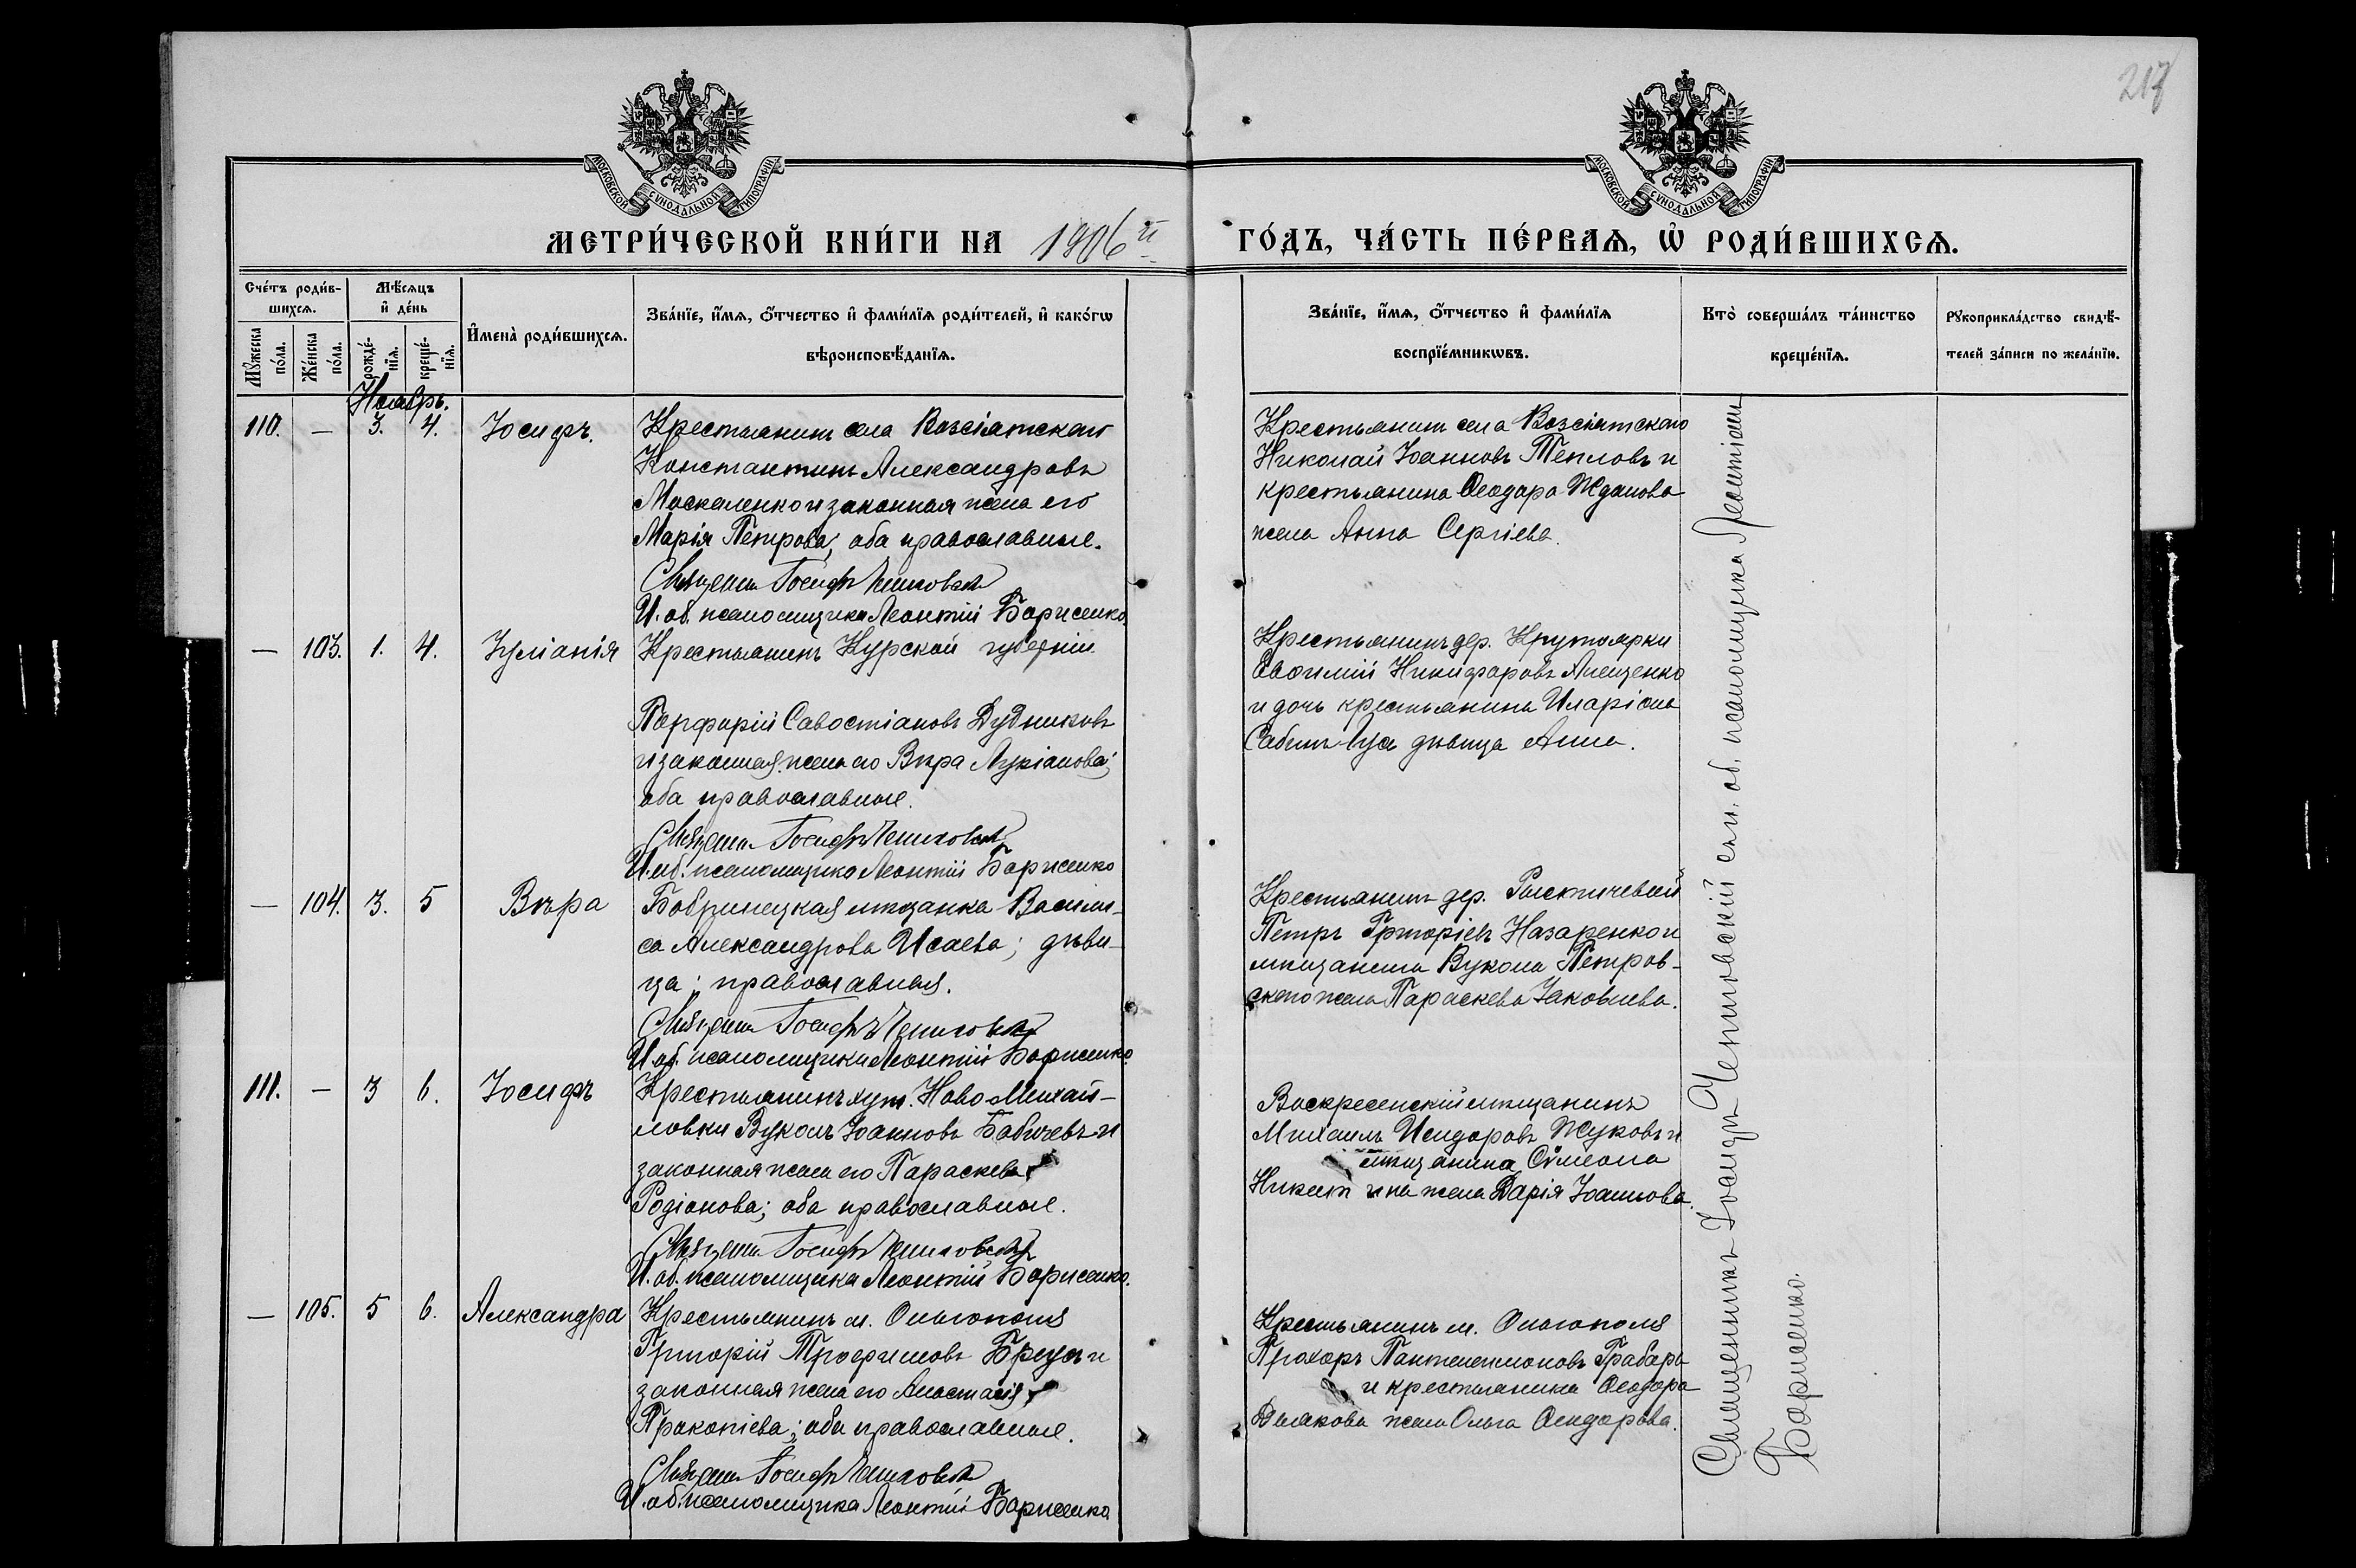 217
МОСКОВСКОЙ СѴНОДАЛЬНОЙ ТИПОГРАФІИ
МОСКОВСКОЙ СѴНОДАЛЬНОЙ ТИПОГРАФІИ
МЕТРИ́ЧЕСКОЙ КНИ́ГИ НА 1906й ГО́ДЪ, ЧА́СТЬ ПЕ́РВАѦ, Ѡ҆ РОДИ́ВШИХСѦ.
Сче́тъ роди́в-
шихсѧ.
Мꙋ́жеска по́ла.
Же́нска по́ла.
Мѣ́сѧцъ и҆ де́нь
рожде́-
нїѧ.
креще́-
нїѧ.
И҆мена̀ роди́вшихсѧ.
Зва́нїе, и҆́мѧ, ѻ҆́тчество и҆ фами́лїѧ роди́телей, и҆ како́гѡ
вѣроисповѣ́данїѧ.
Зва́нїе, и҆́мѧ, ѻ҆́тчество и҆ фами́лїѧ
воспрїе́мникѡвъ.
Кто̀ соверша́лъ та́инство
креще́нїѧ.
Рꙋкоприкла́дство свидѣ́-
телей за́писи по жела́нїю.
Ноябрь.
110. — 3. 4. Іосифъ.
Крестьянинъ села Возсіятскаго
Константинъ Александровъ
Москаленко и законная жена его
Марія Петрова; оба православные.
Священ. Іосифъ
И. об. псаломщика Леонтій Борисенко.
Крестьянинъ села Возсіятскаго
Николай Іоанновъ Тепловъ и
крестьянина Ѳеодора Жданова
жена Анна Сергіева.
— 103. 1. 4. Іуліанія
Крестьянинъ Курской губерніи
Порфирій Савостіановъ Дудниковъ
и законная жена его Вѣра Лукіанова;
оба православные.
Священ. Іосифъ
И. об. псаломщика Леонтій Борисенко
Крестьянинъ дер. Крутоярки
Евѳимій Никифоровъ Алещенко
и дочь крестьянина Иларіона
дѣвица Анна.
— 104. 3. 5 Вѣра
Бобринецкая мѣщанка Васили-
са Александрова Исаева; дѣви-
ца; православная.
Священ. Іосифъ
И. об. псаломщика Леонтій Борисенко
Крестьянинъ дер.
Петръ Григоріевъ Назаренко и
мѣщанина Вукола Петров-
скаго жена Параскева Іаковлева.
111. — 3 6. Іосифъ
Крестьянинъ хут. Ново-Михай-
ловки Вуколъ Іоанновъ Бабичевъ и
законная жена его Параскева
Родіонова; оба православные.
Священ. Іосифъ
И. об. псаломщика Леонтій Борисенко.
Воскресенскій мѣщанинъ
Михаилъ Исидоровъ Жуковъ и
мѣщанина Сѵмеона
Никитина жена Дарія Іоаннова.
— 105. 5 6. Александра
Крестьянинъ м. Ольгополя
Григорій Трофимовъ и
законная жена его Анастасія
Прокопіева; оба православные.
Священ. Іосифъ
И. об. псаломщика Леонтій Борисенко
Крестьянинъ м. Ольгополя
Прохоръ Пантелеимоновъ Грабаръ
и крестьянина Ѳеодора
Дьякова жена Ольга Ѳеодорова.
Священникъ Іосифъ съ и. об. псаломщика Леонтіемъ
Борисенко.